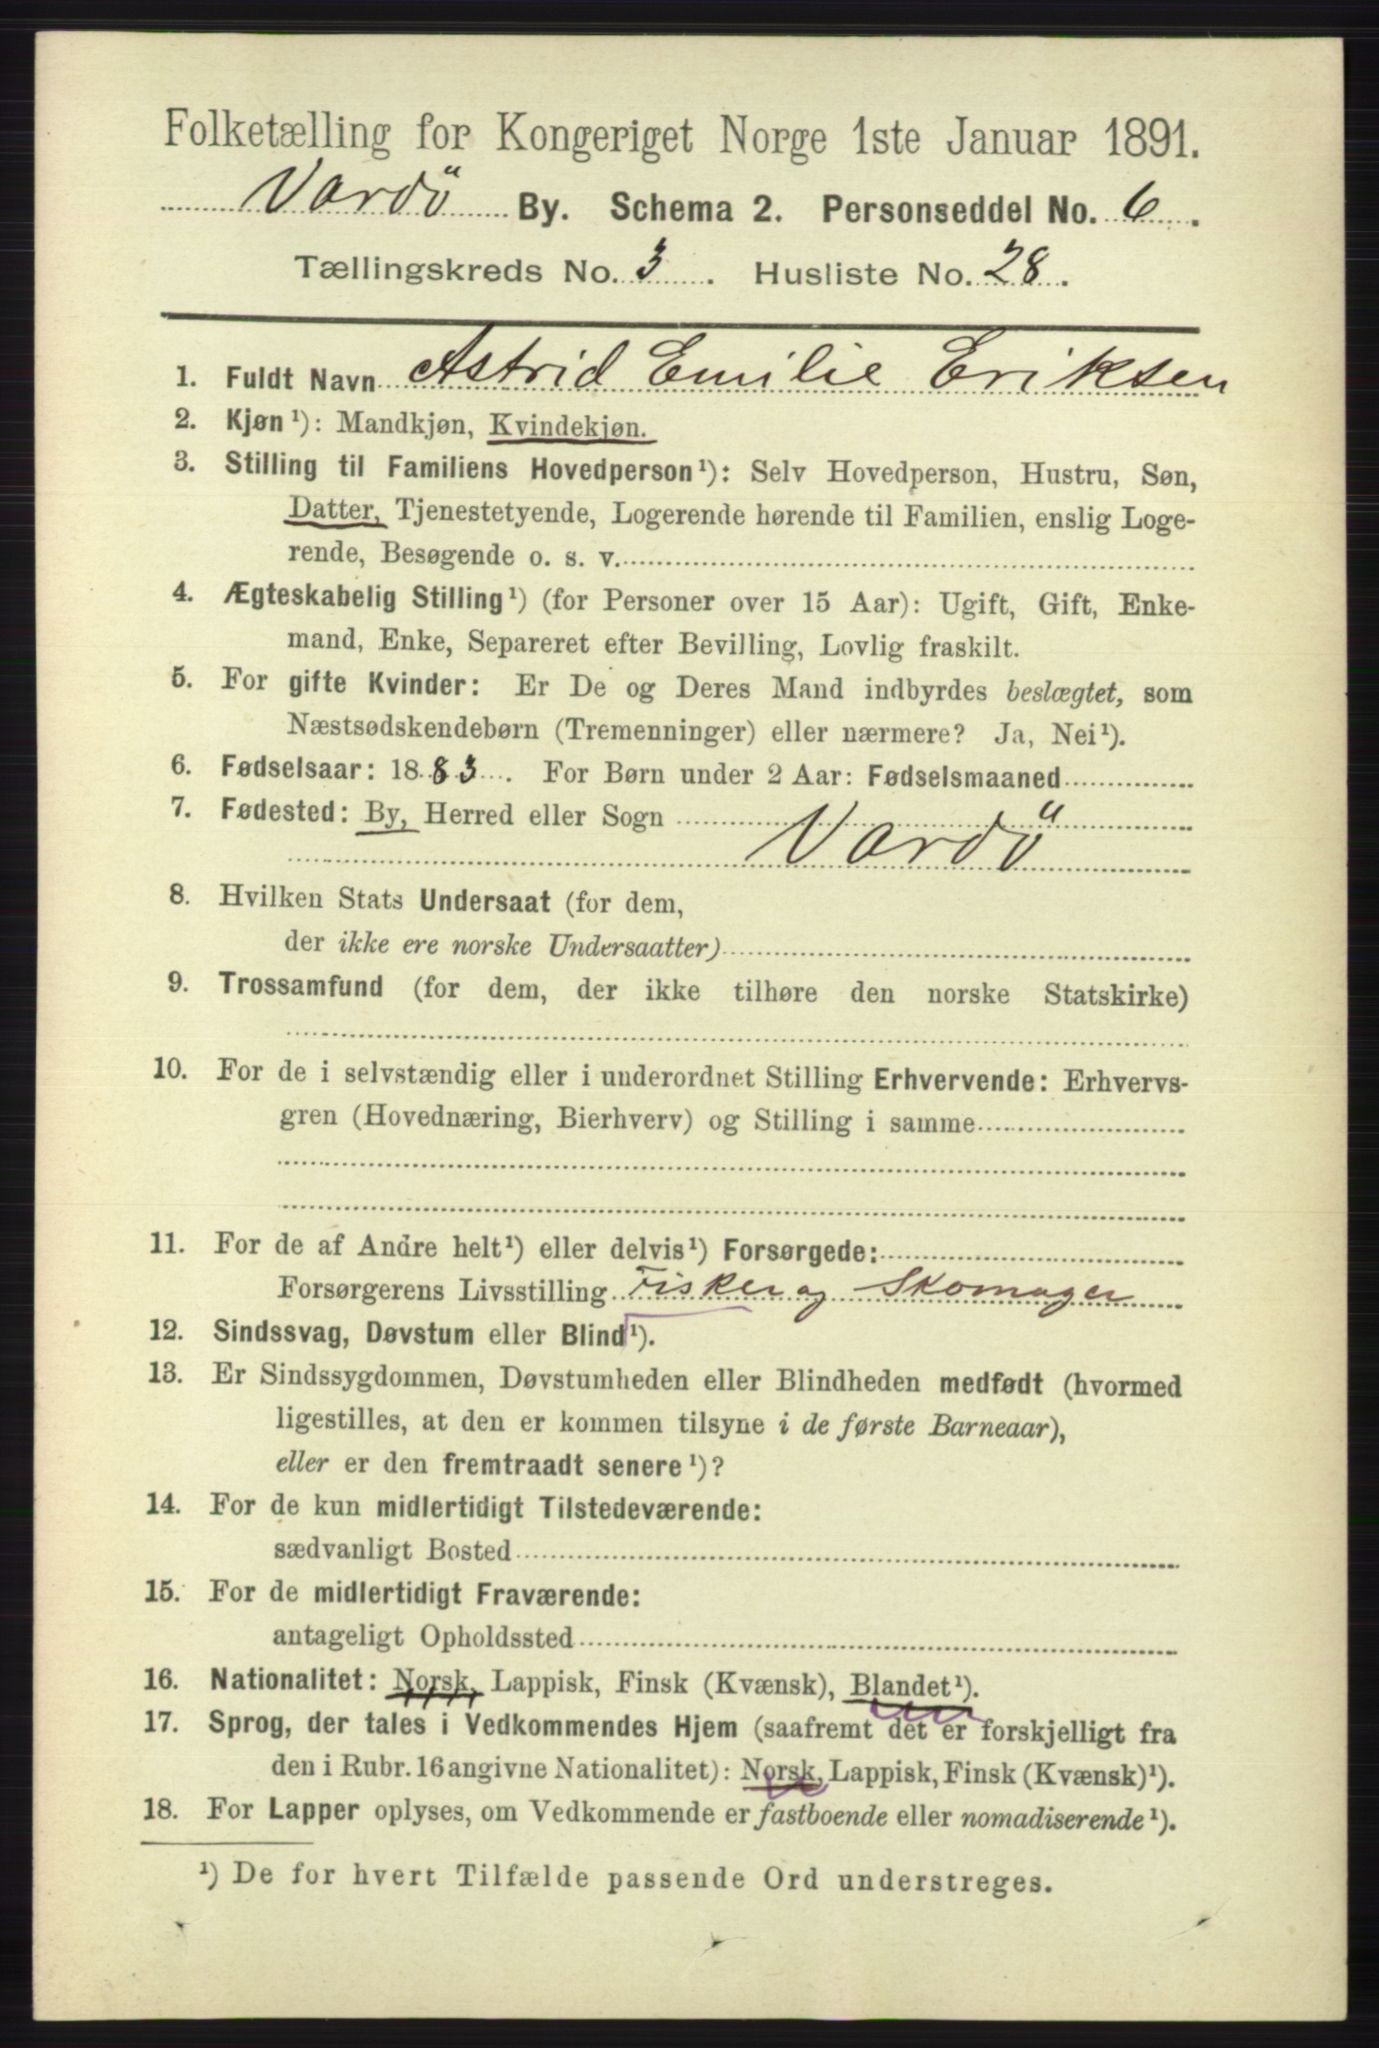 Folketælling for Kongeriget Norge 1ste Januar 1891.
Vardö By. Schema 2. Personseddel No. 6.
Tællingskreds No. 3. Husliste No. 28.
1. Fuldt Navn Astrid Emilie Eriksen
2. Kjøn¹): Mandkjøn, Kvindekjøn.
3. Stilling til Familiens Hovedperson¹): Selv Hovedperson, Hustru, Søn,
Datter, Tjenestetyende, Logerende hørende til Familien, enslig Loge-
rende, Besøgende o. s. v.
4. Ægteskabelig Stilling¹) (for Personer over 15 Aar): Ugift, Gift, Enke-
mand, Enke, Separeret efter Bevilling, Lovlig fraskilt.
5. For gifte Kvinder: Er De og Deres Mand indbyrdes beslægtet, som
Næstsødskendebørn (Tremenninger) eller nærmere? Ja, Nei¹).
6. Fødselsaar: 1883. For Børn under 2 Aar: Fødselsmaaned
7. Fødested: By, Herred eller Sogn
Vardö
8. Hvilken Stats Undersaat (for dem,
der ikke ere norske Undersaatter)
9. Trossamfund (for dem, der ikke tilhøre den norske Statskirke)
10. For de i selvstændig eller i underordnet Stilling Erhvervende: Erhvervs-
gren (Hovednæring, Bierhverv) og Stilling i samme
11. For de af Andre helt¹) eller delvis¹) Forsørgede:
Forsørgerens Livsstilling Fisker og Skomager
12. Sindssvag, Døvstum eller Blind¹).
13. Er Sindssygdommen, Døvstumheden eller Blindheden medfødt (hvormed
ligestilles, at den er kommen tilsyne i de første Barneaar),
eller er den fremtraadt senere¹)?
14. For de kun midlertidigt Tilstedeværende:
sædvanligt Bosted
15. For de midlertidigt Fraværende:
antageligt Opholdssted
16. Nationalitet: Norsk, Lappisk, Finsk (Kvænsk), Blandet¹).
17. Sprog, der tales i Vedkommendes Hjem (saafremt det er forskjelligt fra
den i Rubr. 16 angivne Nationalitet): Norsk, Lappisk, Finsk (Kvænsk)¹).
18. For Lapper oplyses, om Vedkommende er fastboende eller nomadiserende¹).
¹) De for hvert Tilfælde passende Ord understreges.